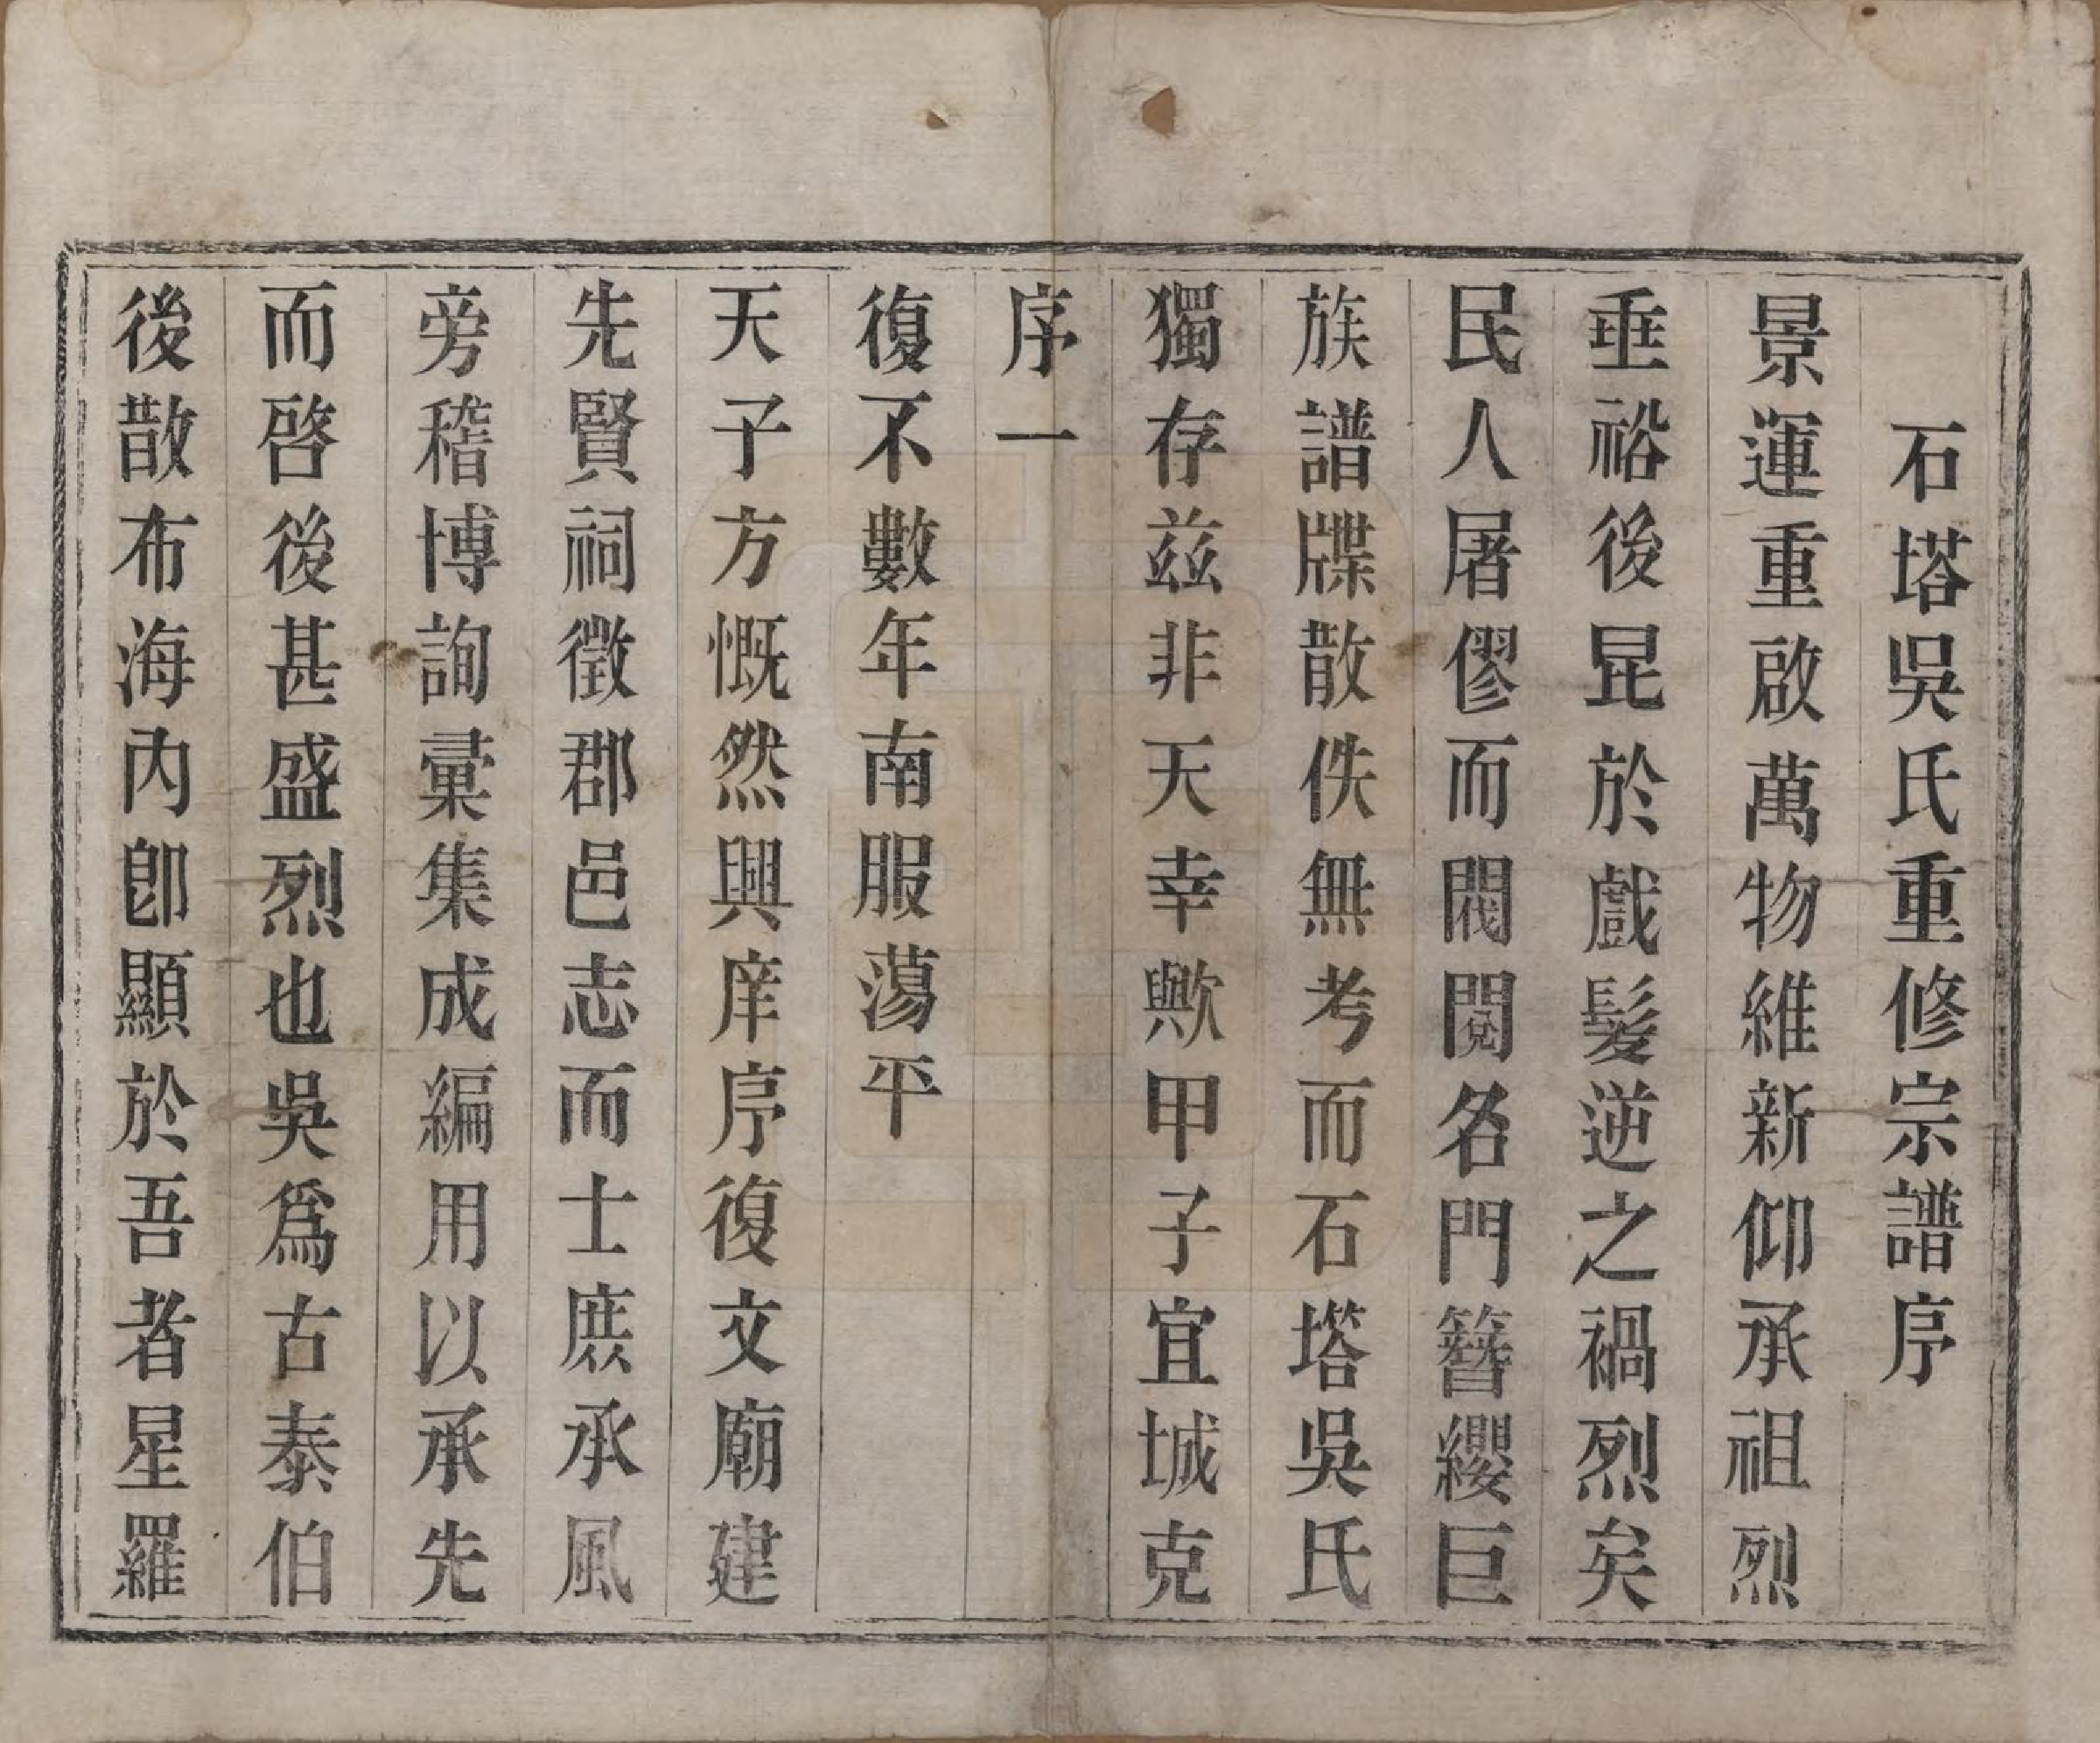 石塔吳氏重修宗譜序
景運重啟萬物維新仰承祖烈
垂裕後昆於戲髮逆之禍烈矣
民人屠僇而閥閱名門簪纓巨
族譜牒散佚無考而石塔吳氏
獨存兹非天幸歟甲子宜城克
序一
復不數年南服蕩平
天子方慨然興庠序復文廟建
先賢祠徵郡邑志而士庶承風
旁稽博詢彙集成編用以承先
而啓後甚盛烈也吳爲古泰伯
後散布海內卽顯於吾者星羅